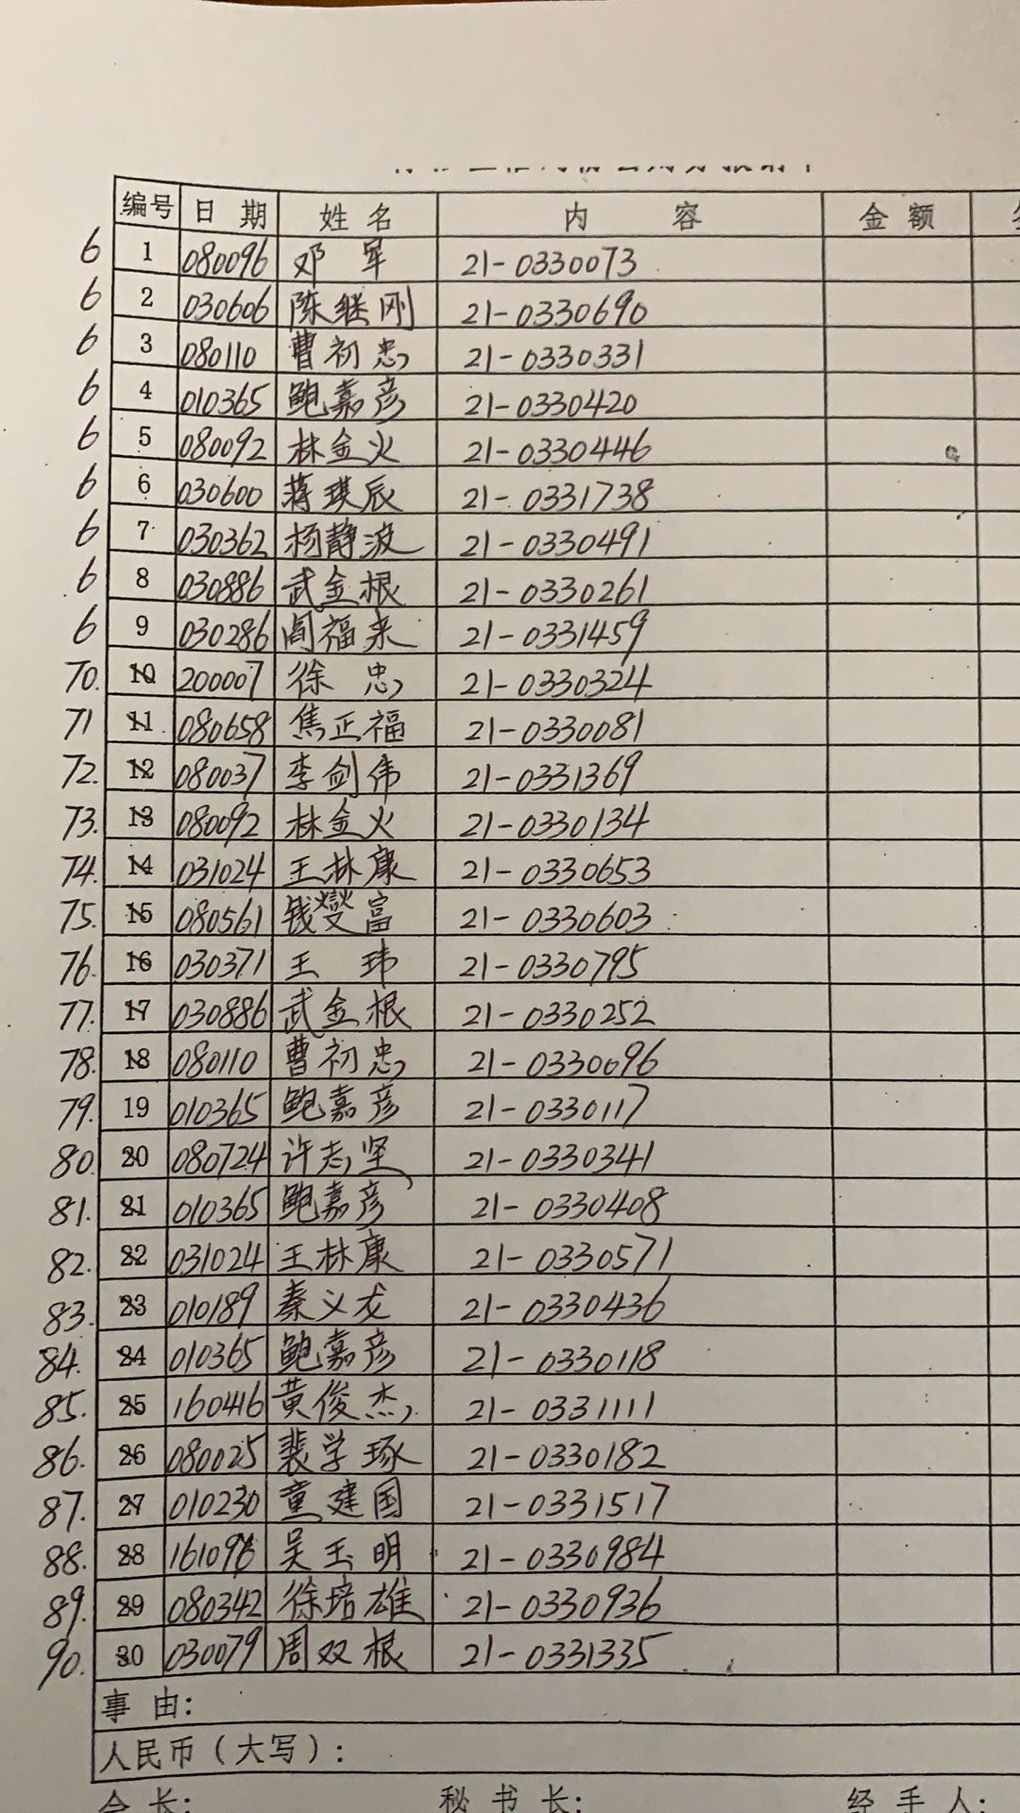 编号 日 期 姓 名 内 容 金 额
6 1 080096 邓 军 21-0330073
6 2 030606 陈继刚 21-0330690
6 3 080110 曹初忠 21-0330331
6 4 010365 鲍嘉彦 21-0330420
6 5 080092 林金火 21-0330446
6 6 030600 蒋琪辰 21-0331738
6 7 030362 杨静波 21-0330491
6 8 030886 武金根 21-0330261
6 9 030286 阎福来 21-0331459
70. 10 200007 徐 忠 21-0330324
71 11 080658 焦正福 21-0330081
72. 12 080037 李剑伟 21-0331369
73. 13 080092 林金火 21-0330134
74. 14 031024 王林康 21-0330653
75. 15 080561 钱燮富 21-0330603
76. 16 030371 王 玮 21-0330795
77. 17 030886 武金根 21-0330252
78. 18 080110 曹初忠 21-0330096
79. 19 010365 鲍嘉彦 21-0330117
80. 20 080724 许志坚 21-0330341
81. 21 010365 鲍嘉彦 21-0330408
82. 22 031024 王林康 21-0330571
83. 23 010189 秦义龙 21-0330436
84. 24 010365 鲍嘉彦 21-0330118
85. 25 160416 黄俊杰 21-0331111
86. 26 080025 裴学琢 21-0330182
87. 27 010230 童建国 21-0331517
88. 28 161096 吴玉明 21-0330984
89. 29 080342 徐培雄 21-0330936
90. 30 030079 周双根 21-0331335
事 由：
人民币（大写）：
会 长： 秘 书 长： 经 手 人：